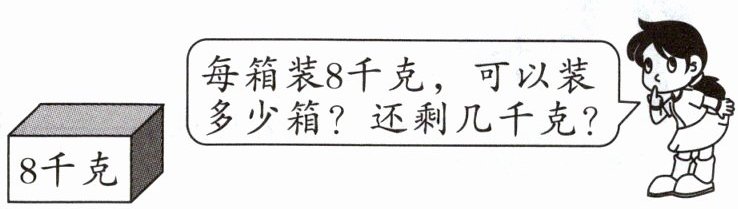 每箱装8千克，可以装
多少箱？还剩几千克？
8千克